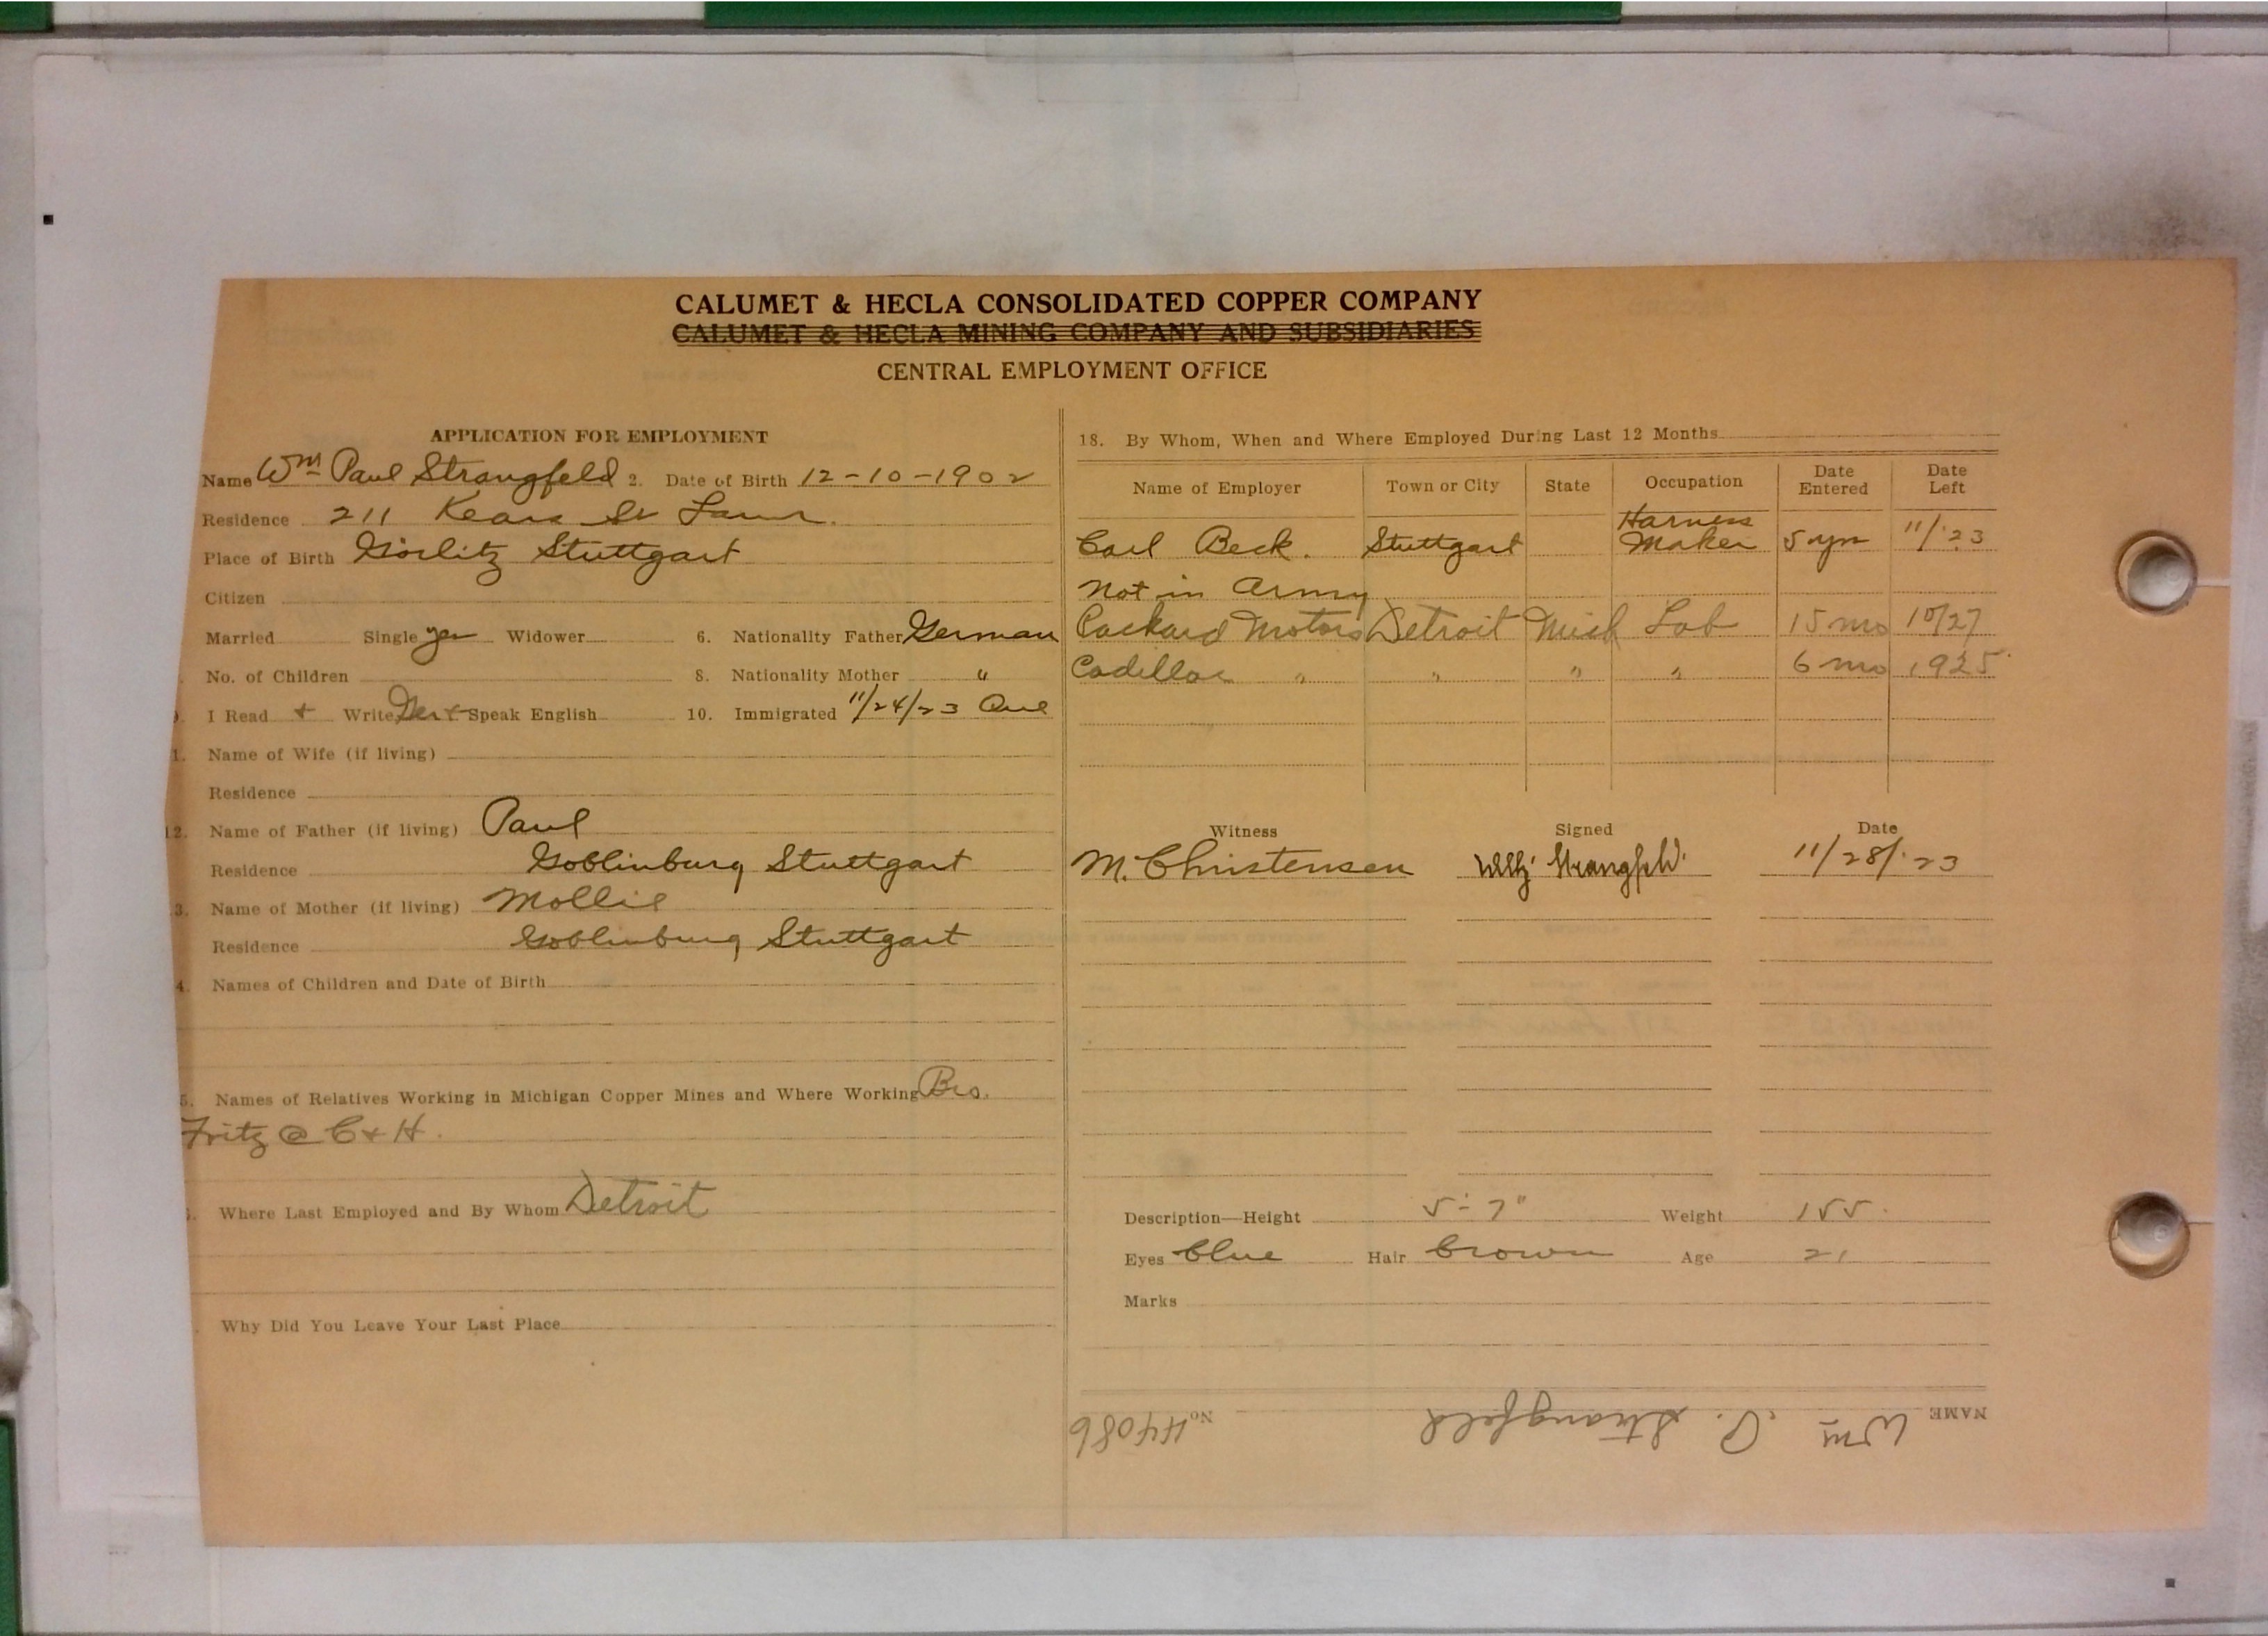 CALUMET & HECLA CONSOLIDATED COPPER COMPANY
CALUMET & HECLA MINING COMPANY AND SUBSIDIARIES
CENTRAL EMPLOYMENT OFFICE
APPLICATION FOR EMPLOYMENT
Name Wm Paul Strangfeld 2. Date of Birth 12-10-1902
Residence 211 Kears
Place of Birth Görlitz Stuttgart
Citizen
Married Single yes Widower 6. Nationality Father German
No. of Children 8. Nationality Mother "
I Read + Write Ger + Speak English 10. Immigrated 11/24/23
1. Name of Wife (if living)
Residence
12. Name of Father (if living) Paul
Residence Goblinburg Stuttgart
3. Name of Mother (if living) Mollie
Residence Goblinburg Stuttgart
4. Names of Children and Date of Birth
5. Names of Relatives Working in Michigan Copper Mines and Where Working Bro.
Fritz @ C + H.
Where Last Employed and By Whom Detroit
Why Did You Leave Your Last Place
18. By Whom, When and Where Employed During Last 12 Months
Name of Employer Town or City State Occupation Date Entered Date Left
Carl Beck. Stuttgart Harness Maker 5 yrs 11/'23
Not in Army
Packard Motors Detroit Mich Lab 15 mo 10/27
Cadillac " " " " 6 mo 1925
Witness Signed Date
M. Christensen Willy Strangfeld. 11/28/'23
Description—Height 5-7" Weight 155.
Eyes Blue Hair Brown Age 21
Marks
NAME Wm P. Strangfeld No. 44086